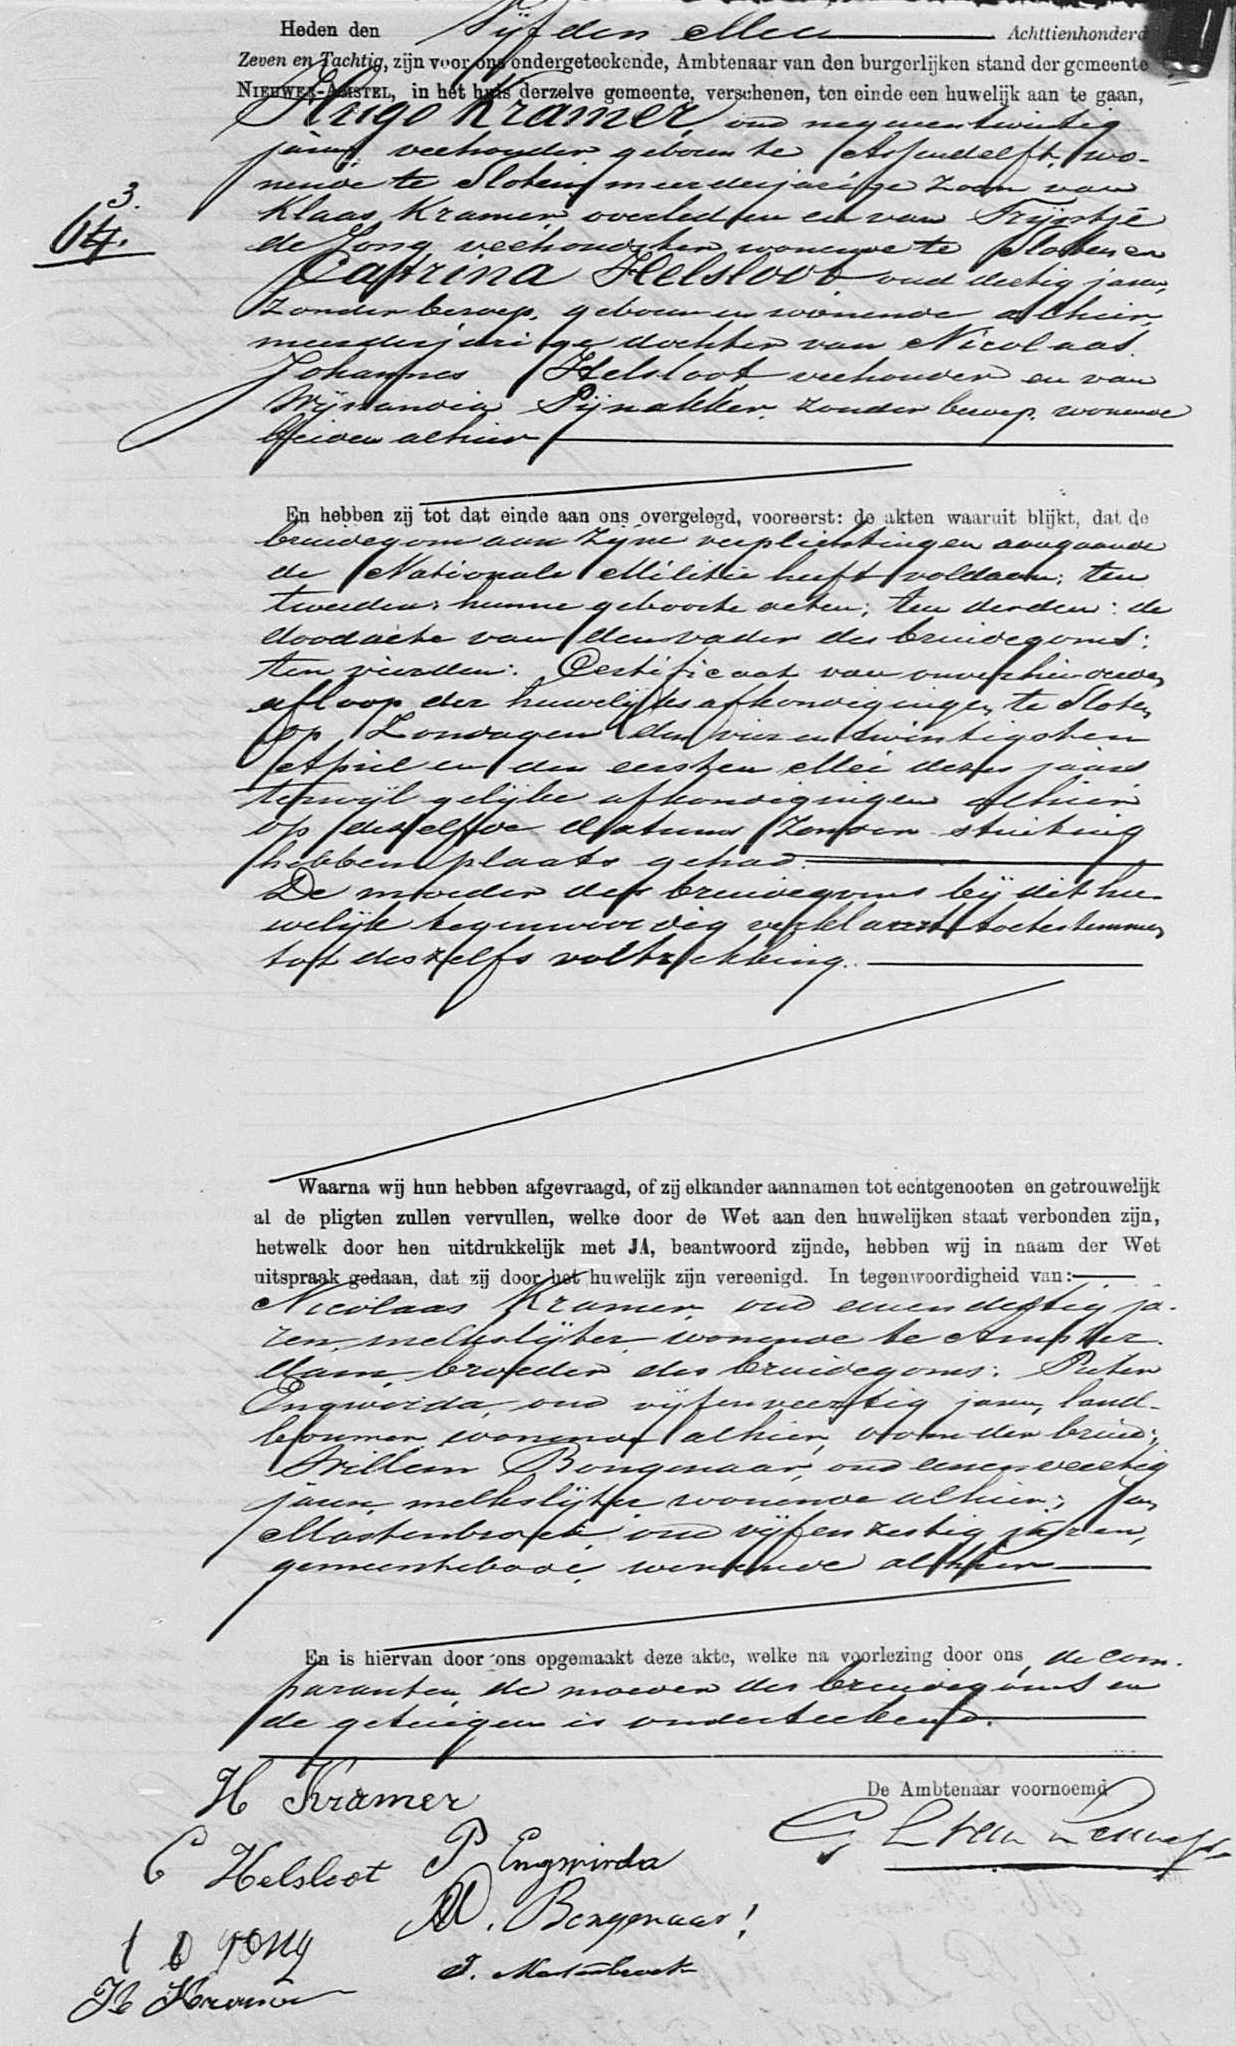 Heden den Vijfden Mei Achttienhonderd
Zeven en Tachtig, zijn voor ons ondergeteekende, Ambtenaar van den burgerlijken stand der gemeente
NIEUWER-AMSTEL, in het huis derzelve gemeente, verschenen, ten einde een huwelijk aan te gaan,
Hugo Kramer, oud negenentwintig
jaren, veehouder geboren te Assendelft, wo-
nende te Sloten, meerderjarige zoon van
3.
64.
Klaas Kramer overleden en van Trijntje
de Jong veehoudster wonende te Sloten en
Catrina Helsloot oud dertig jaren,
zonder beroep, geboren en wonende alhier,
meerderjarige dochter van Nicolaas
Johannes Helsloot veehouder en van
Wijnandia Pijnakker zonder beroep, wonende
beiden alhier
En hebben zij tot dat einde aan ons overgelegd, vooreerst: de akten waaruit blijkt, dat de
bruidegom aan zijne verplichtingen aangaande
de Nationale Militie heeft voldaan; ten
tweeden: hunne geboorte acten; ten derden: de
doodacte van den vader des bruidegoms:
ten vierden: Certificaat van onverhinderden
afloop der huwelijks afkondigingen te Sloten
op Zondagen den vierentwintigsten
April en den eersten Mei dezes jaars
terwijl gelijke afkondigingen alhier
op dezelfde datums zonder stuiting
hebben plaats gehad.
De moeder des bruidegoms bij dit hu-
welijk tegenwoordig verklaart toetestemmen
tot deszelfs voltrekking.
Waarna wij hun hebben afgevraagd, of zij elkander aannamen tot echtgenooten en getrouwelijk
al de pligten zullen vervullen, welke door de Wet aan den huwelijken staat verbonden zijn,
hetwelk door hen uitdrukkelijk met JA, beantwoord zijnde, hebben wij in naam der Wet
uitspraak gedaan, dat zij door het huwelijk zijn vereenigd. In tegenwoordigheid van:
Nicolaas Kramer, oud eenendertig ja-
ren, melkslijter, wonende te Amster-
dam, broeder des bruidegoms: Pieter
Engwirda, oud vijfenveertig jaren, land-
bouwer, wonende alhier, oom der bruid;
Willem Bongenaar, oud eenenveertig
jaren, melkslijter wonende alhier; Jan
Mastenbroek, oud vijfenzestig jaren,
gemeentebode, wonende alhier
En is hiervan door ons opgemaakt deze akte, welke na voorlezing door ons, de com-
paranten, de moeder des bruidegoms en
de getuigen is onderteekend.
De Ambtenaar voornoemd
H Kramer
C Helsloot
P Engwirda
W. Bongenaar!
t d Jong
J. Mastenbroek
N Kramer